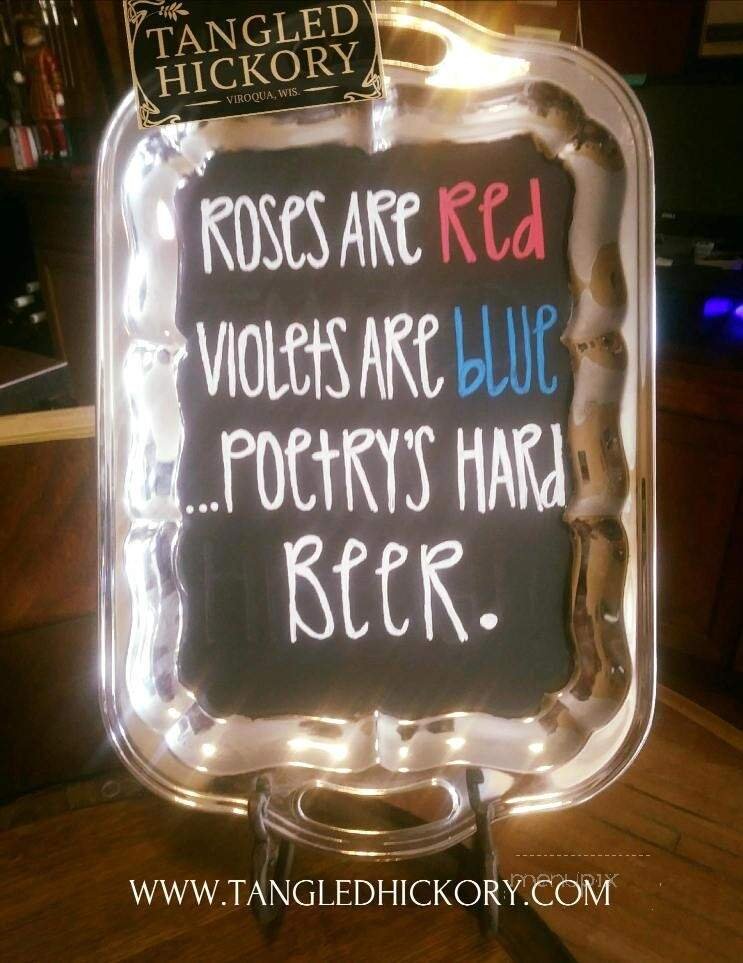 TANGLED
HICKORY
VIROQUA, WIS.
ROSES ARE Red
VIOLetS ARE bLUE
...POetRY'S HARd
BeeR.
menupix
WWW.TANGLEDHICKORY.COM